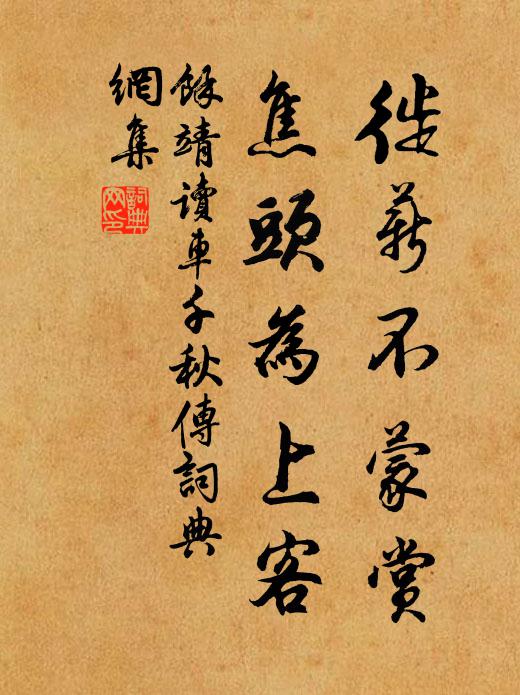 徙薪不蒙赏
焦頭為上客
餘靖讀車千秋傳詞典
網集
詞典網印